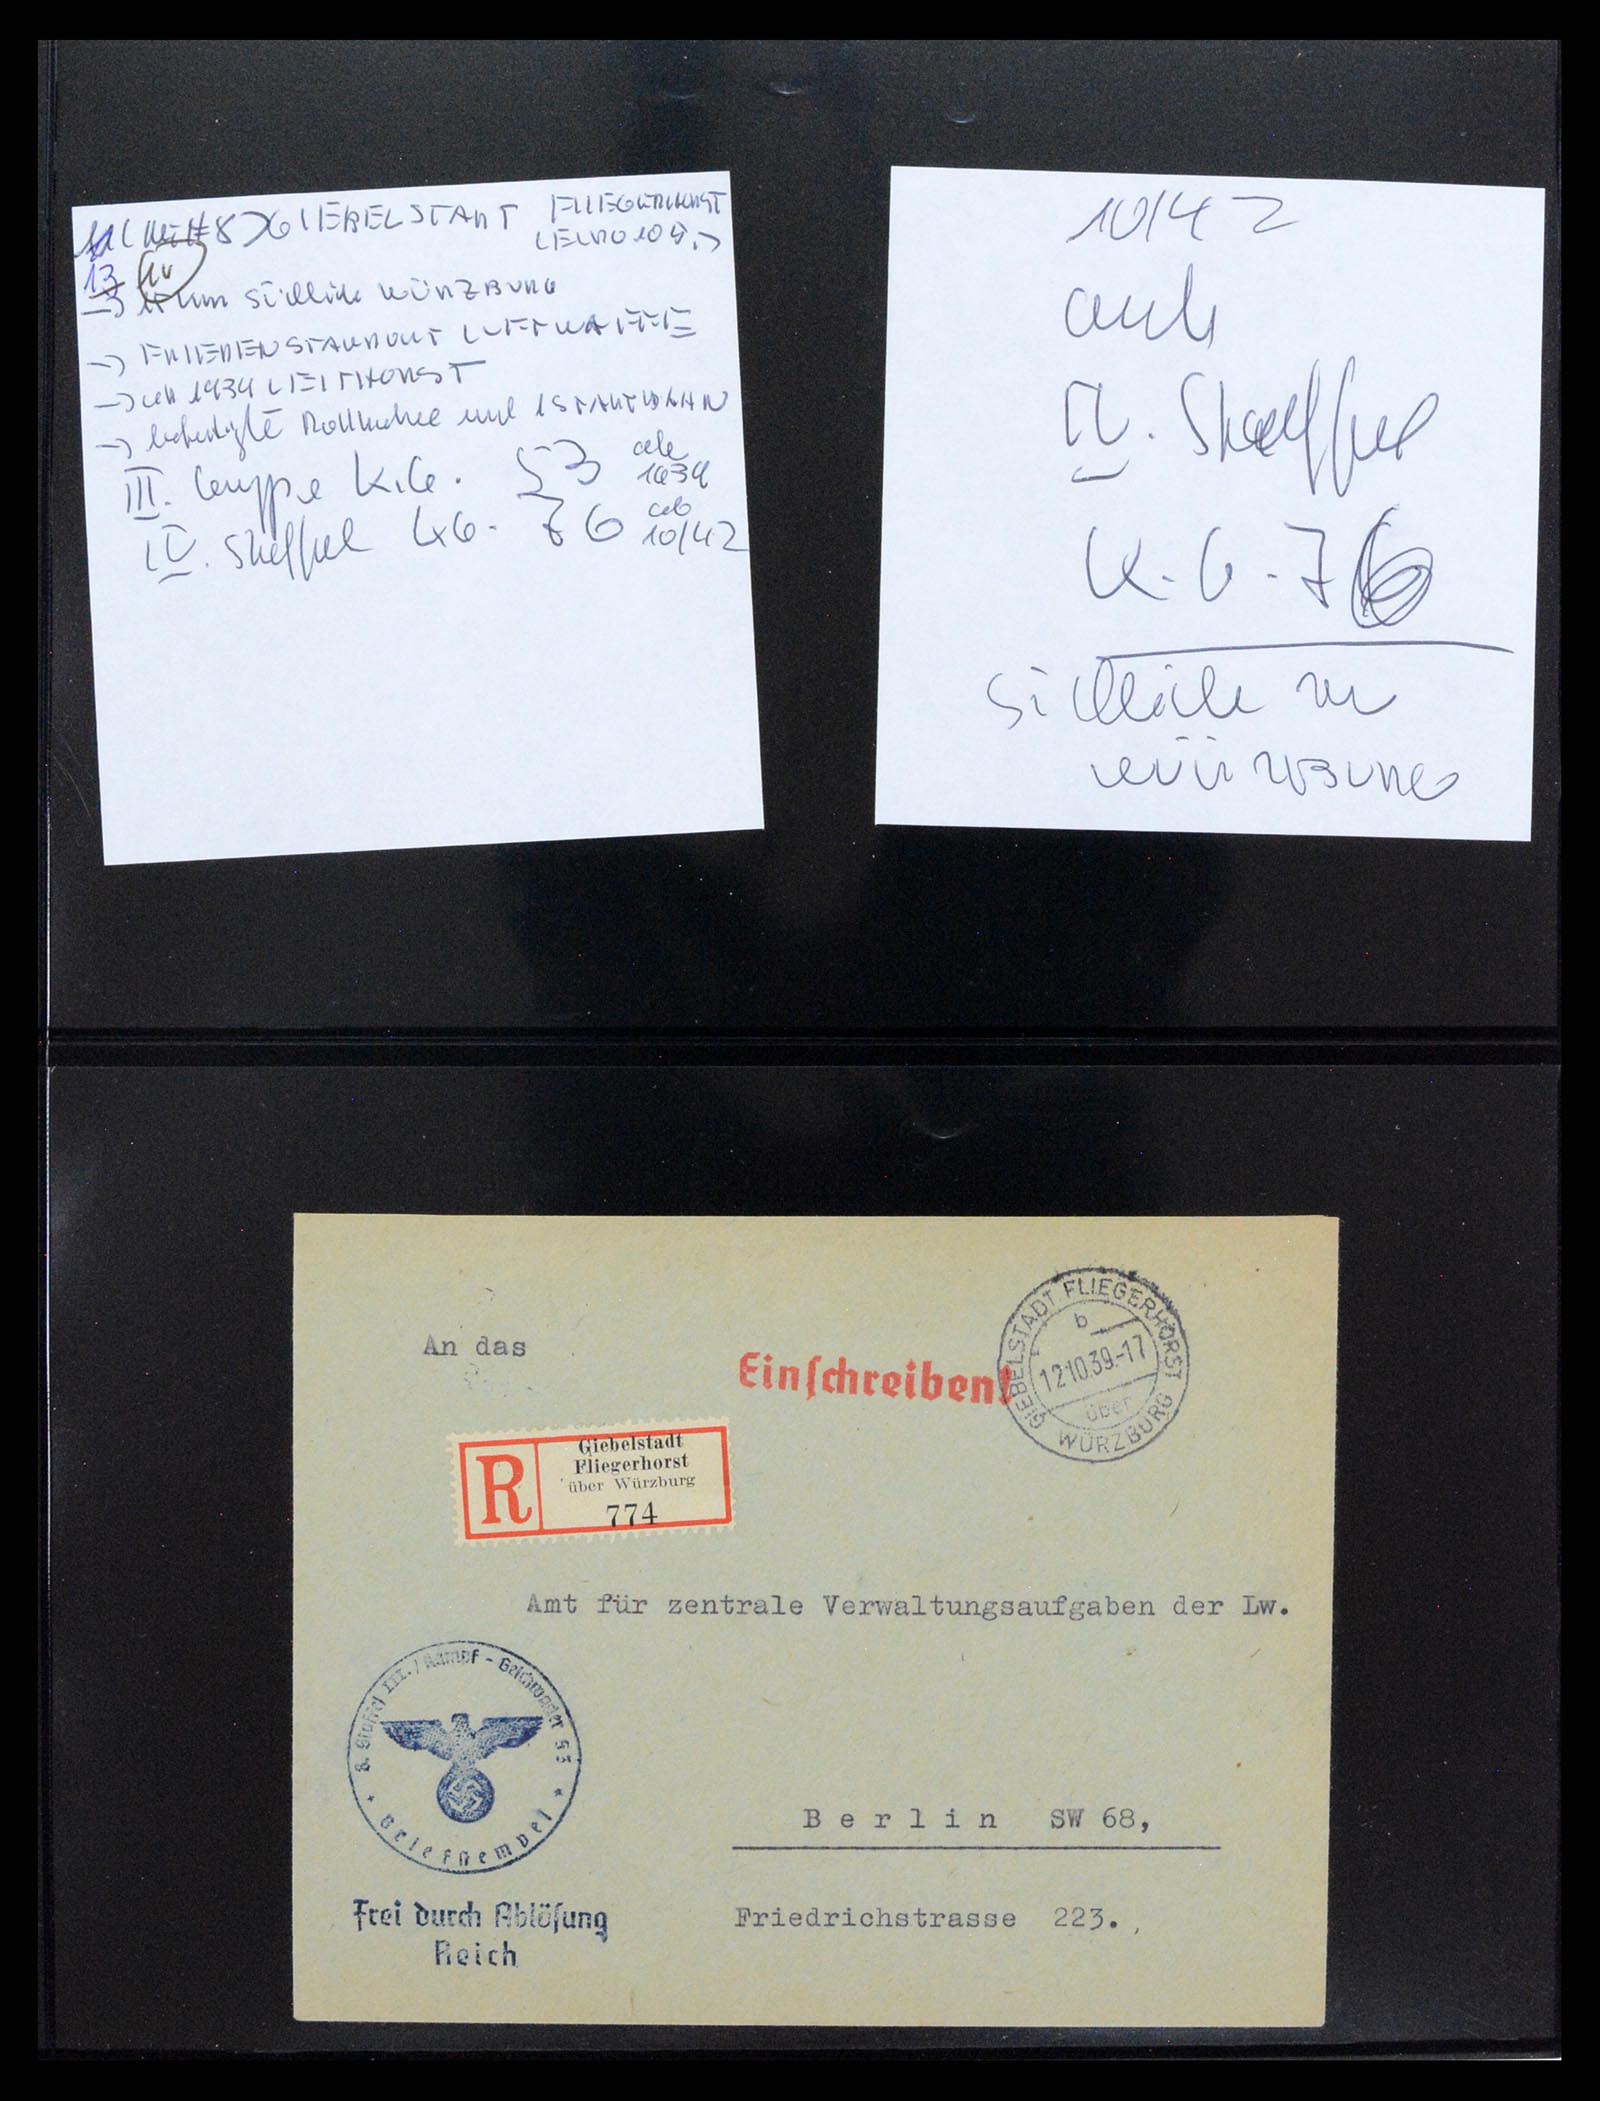 GIEBELSTADT FLIEGERHORST
13
südlich WÜRZBURG
→ FRIEDENSTANDORT LUFTWAFFE
→ 1939 LEITHORST
→ befestigte und 1 STARTBAHN
III. Gruppe K.G. 53 ab 1939
IV. Staffel KG. 76 ab 10/42
10/42
auch
IV. Staffel
K.G. 76
südlich
WÜRZBURG
An das
Einschreiben!
GIEBELSTADT FLIEGERHORST
b
12.10.39.-17
über
WÜRZBURG
R
Giebelstadt
Fliegerhorst
über Würzburg
774
Amt für zentrale Verwaltungsaufgaben der Lw.
8. Staffel III. / Kampf - Geschwader 53
Briefstempel
Berlin SW 68,
Frei durch Ablösung
Reich
Friedrichstrasse 223.